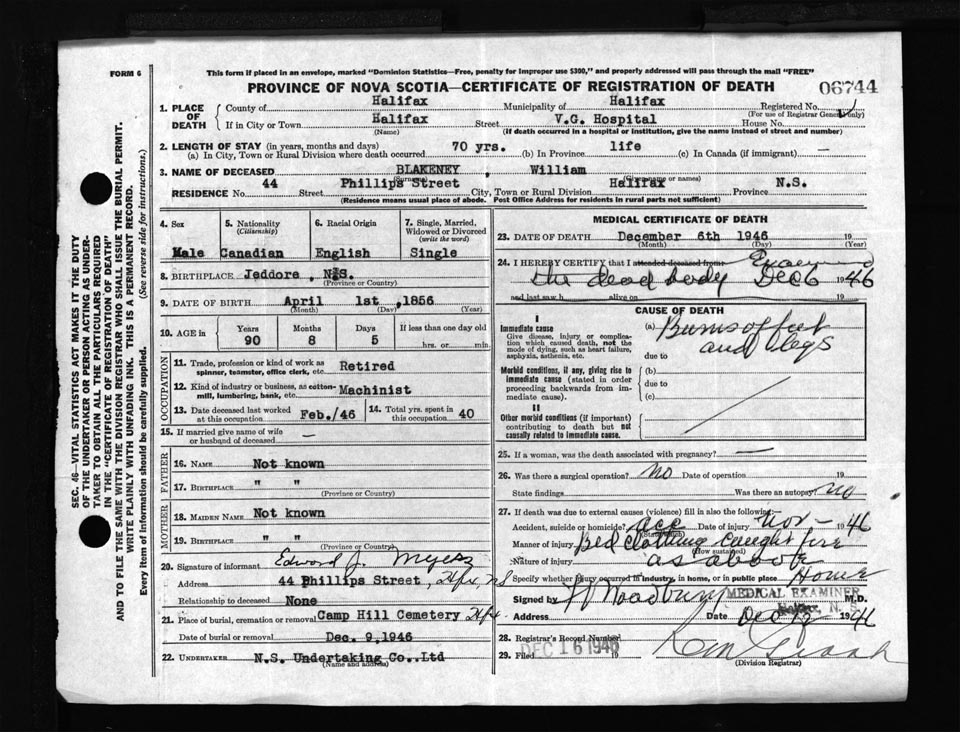 FORM 6
This form if placed in an envelope, marked "Dominion Statistics—Free, penalty for improper use $300," and properly addressed will pass through the mail "FREE"
PROVINCE OF NOVA SCOTIA—CERTIFICATE OF REGISTRATION OF DEATH
06744
1. PLACE OF DEATH
County of Halifax Municipality of Halifax Registered No.
(For use of Registrar General only)
If in City or Town Halifax Street V.G. Hospital House No.
(Name) (If death occurred in a hospital or institution, give the name instead of street and number)
2. LENGTH OF STAY (in years, months and days)
(a) In City, Town or Rural Division where death occurred 70 yrs. (b) In Province life (c) In Canada (if immigrant) —
3. NAME OF DECEASED BLAKENEY, William
(Surname) (Given name or names)
RESIDENCE No. 44 Street Phillips Street City, Town or Rural Division Halifax Province N.S.
(Residence means usual place of abode. Post Office Address for residents in rural parts not sufficient)
SEC. 46—VITAL STATISTICS ACT MAKES IT THE DUTY
OF THE UNDERTAKER OR PERSON ACTING AS UNDER-
TAKER TO OBTAIN ALL THE PARTICULARS REQUIRED
IN THE "CERTIFICATE OF REGISTRATION OF DEATH"
AND TO FILE THE SAME WITH THE DIVISION REGISTRAR WHO SHALL ISSUE THE BURIAL PERMIT.
WRITE PLAINLY WITH UNFADING INK. THIS IS A PERMANENT RECORD.
Every item of information should be carefully supplied. (See reverse side for instructions.)
4. Sex
Male
5. Nationality
(Citizenship)
Canadian
6. Racial Origin
English
7. Single, Married,
Widowed or Divorced
(write the word)
Single
8. BIRTHPLACE Jeddore, N.S.
(Province or Country)
9. DATE OF BIRTH April 1st, 1856
(Month) (Day) (Year)
10. AGE in
Years Months Days If less than one day old
90 8 5 hrs. or min.
OCCUPATION
11. Trade, profession or kind of work as
spinner, teamster, office clerk, etc. Retired
12. Kind of industry or business, as cotton-
mill, lumbering, bank, etc. Machinist
13. Date deceased last worked
at this occupation Feb./46
14. Total yrs. spent in
this occupation 40
15. If married give name of wife
or husband of deceased —
FATHER
16. NAME Not known
17. BIRTHPLACE " "
(Province or Country)
MOTHER
18. MAIDEN NAME Not known
19. BIRTHPLACE " "
(Province or Country)
20. Signature of informant Edward J. Myers
Address 44 Phillips Street, Hfx NS
Relationship to deceased None
21. Place of burial, cremation or removal Camp Hill Cemetery Hfx
Date of burial or removal Dec. 9, 1946
22. UNDERTAKER N.S. Undertaking Co., Ltd
(Name and address)
MEDICAL CERTIFICATE OF DEATH
23. DATE OF DEATH December 6th 1946 19
(Month) (Day) (Year)
24. I HEREBY CERTIFY that I attended deceased from Examined
the dead body Dec 6 1946
and last saw h alive on 19
CAUSE OF DEATH
I
Immediate cause
Give disease, injury or complica-
tion which caused death, not the
mode of dying, such as heart failure,
asphyxia, asthenia, etc.
(a) Burns of feet
and legs
due to
Morbid conditions, if any, giving rise to
immediate cause (stated in order
proceeding backwards from im-
mediate cause).
(b)
due to
(c)
II
Other morbid conditions (if important)
contributing to death but not
causally related to immediate cause.
25. If a woman, was the death associated with pregnancy? —
26. Was there a surgical operation? No Date of operation 19
State findings Was there an autopsy? no
27. If death was due to external causes (violence) fill in also the following:
Accident, suicide or homicide? Acc Date of injury Nov — 1946
(State which)
Manner of injury Bed clothing caught fire
(How sustained)
Nature of injury as above
Specify whether injury occurred in industry, in home, or in public place Home
Signed by Woodbury M.D.
MEDICAL EXAMINER
Halifax, N. S.
Address Date Dec 1946
28. Registrar's Record Number
29. Filed DEC 16 1946 19
(Division Registrar)